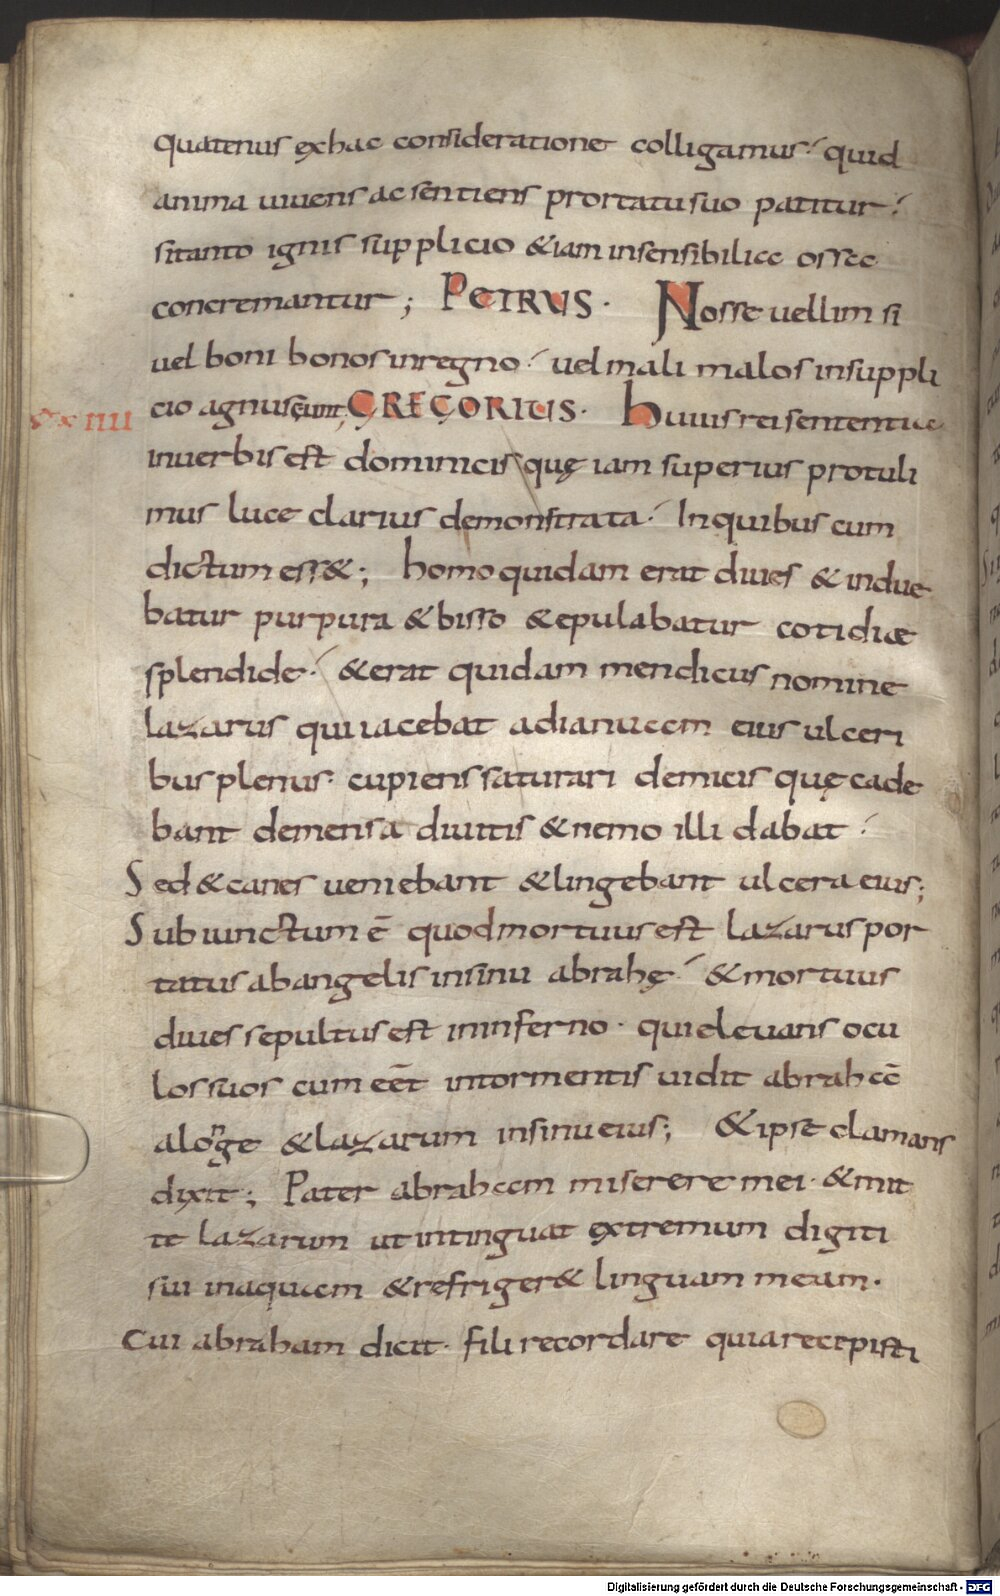 quatenus exhac consideratione colligamus· quid
anima uiuens ac sentiens prortatu suo patitur·
si tanto ignis supplicio &iam insensibilia ossa
concremantur; PETRUS· Nosse uellim si
uel boni bonos in regno· uel mali malos in suppli
XXXIIII cio agnuscunt; GREGORIUS· Huiuis rei sententia
in uerbis est dominicis quę iam superius protuli
mus luce clarius demonstrata· In quibus cum
dictum ess&; homo quidam erat diues & indue
batur purpura & bisso & epulabatur cotidiæ
splendide· & erat quidam mendicus nomine
lazarus qui iacebat ad ianuam eius ulceri
bus plenus· cupiens saturari de micis quę cade
bant de mensa diuitis & nemo illi dabat·
Sed & canes ueniebant & lingebant ulcera eius;
Subiunctum ē quod mortuus est lazarus por
tatus ab angelis in sinu abrahę· & mortuus
diues sepultus est in inferno· qui eleuans ocu
los suos cum eēt in tormentis uidit abrahā
alonge & lazarum in sinu eius; & ipse clamans
dixit; Pater abraham miserere mei· & mit
te lazarum ut intinguat extremum digiti
sui in aquam & refriger& linguam meam·
Cui abraham dicit· fili recordare quia recepisti
Digitalisierung gefördert durch die Deutsche Forschungsgemeinschaft - DFG